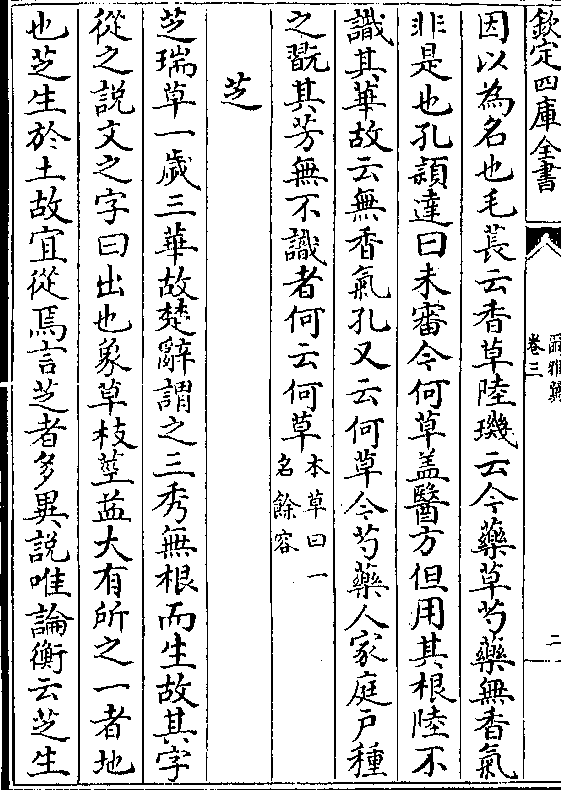 欽定四庫全書
爾雅翼
卷三
二
因以為名也毛萇云香草陸璣云今藥草芍藥無香氣
非是也孔頴達曰未審今何草盖醫方但用其根陸不
識其華故云無香氣孔又云何草今芍藥人家庭戶種
之翫其芳無不識者何云何草本草曰一
名餘容
芝
芝瑞草一歲三華故楚辭謂之三秀無根而生故其字
從之說文之字曰出也象草枝莖益大有所之一者地
也芝生於土故宜從焉言芝者多異說唯論衡云芝生